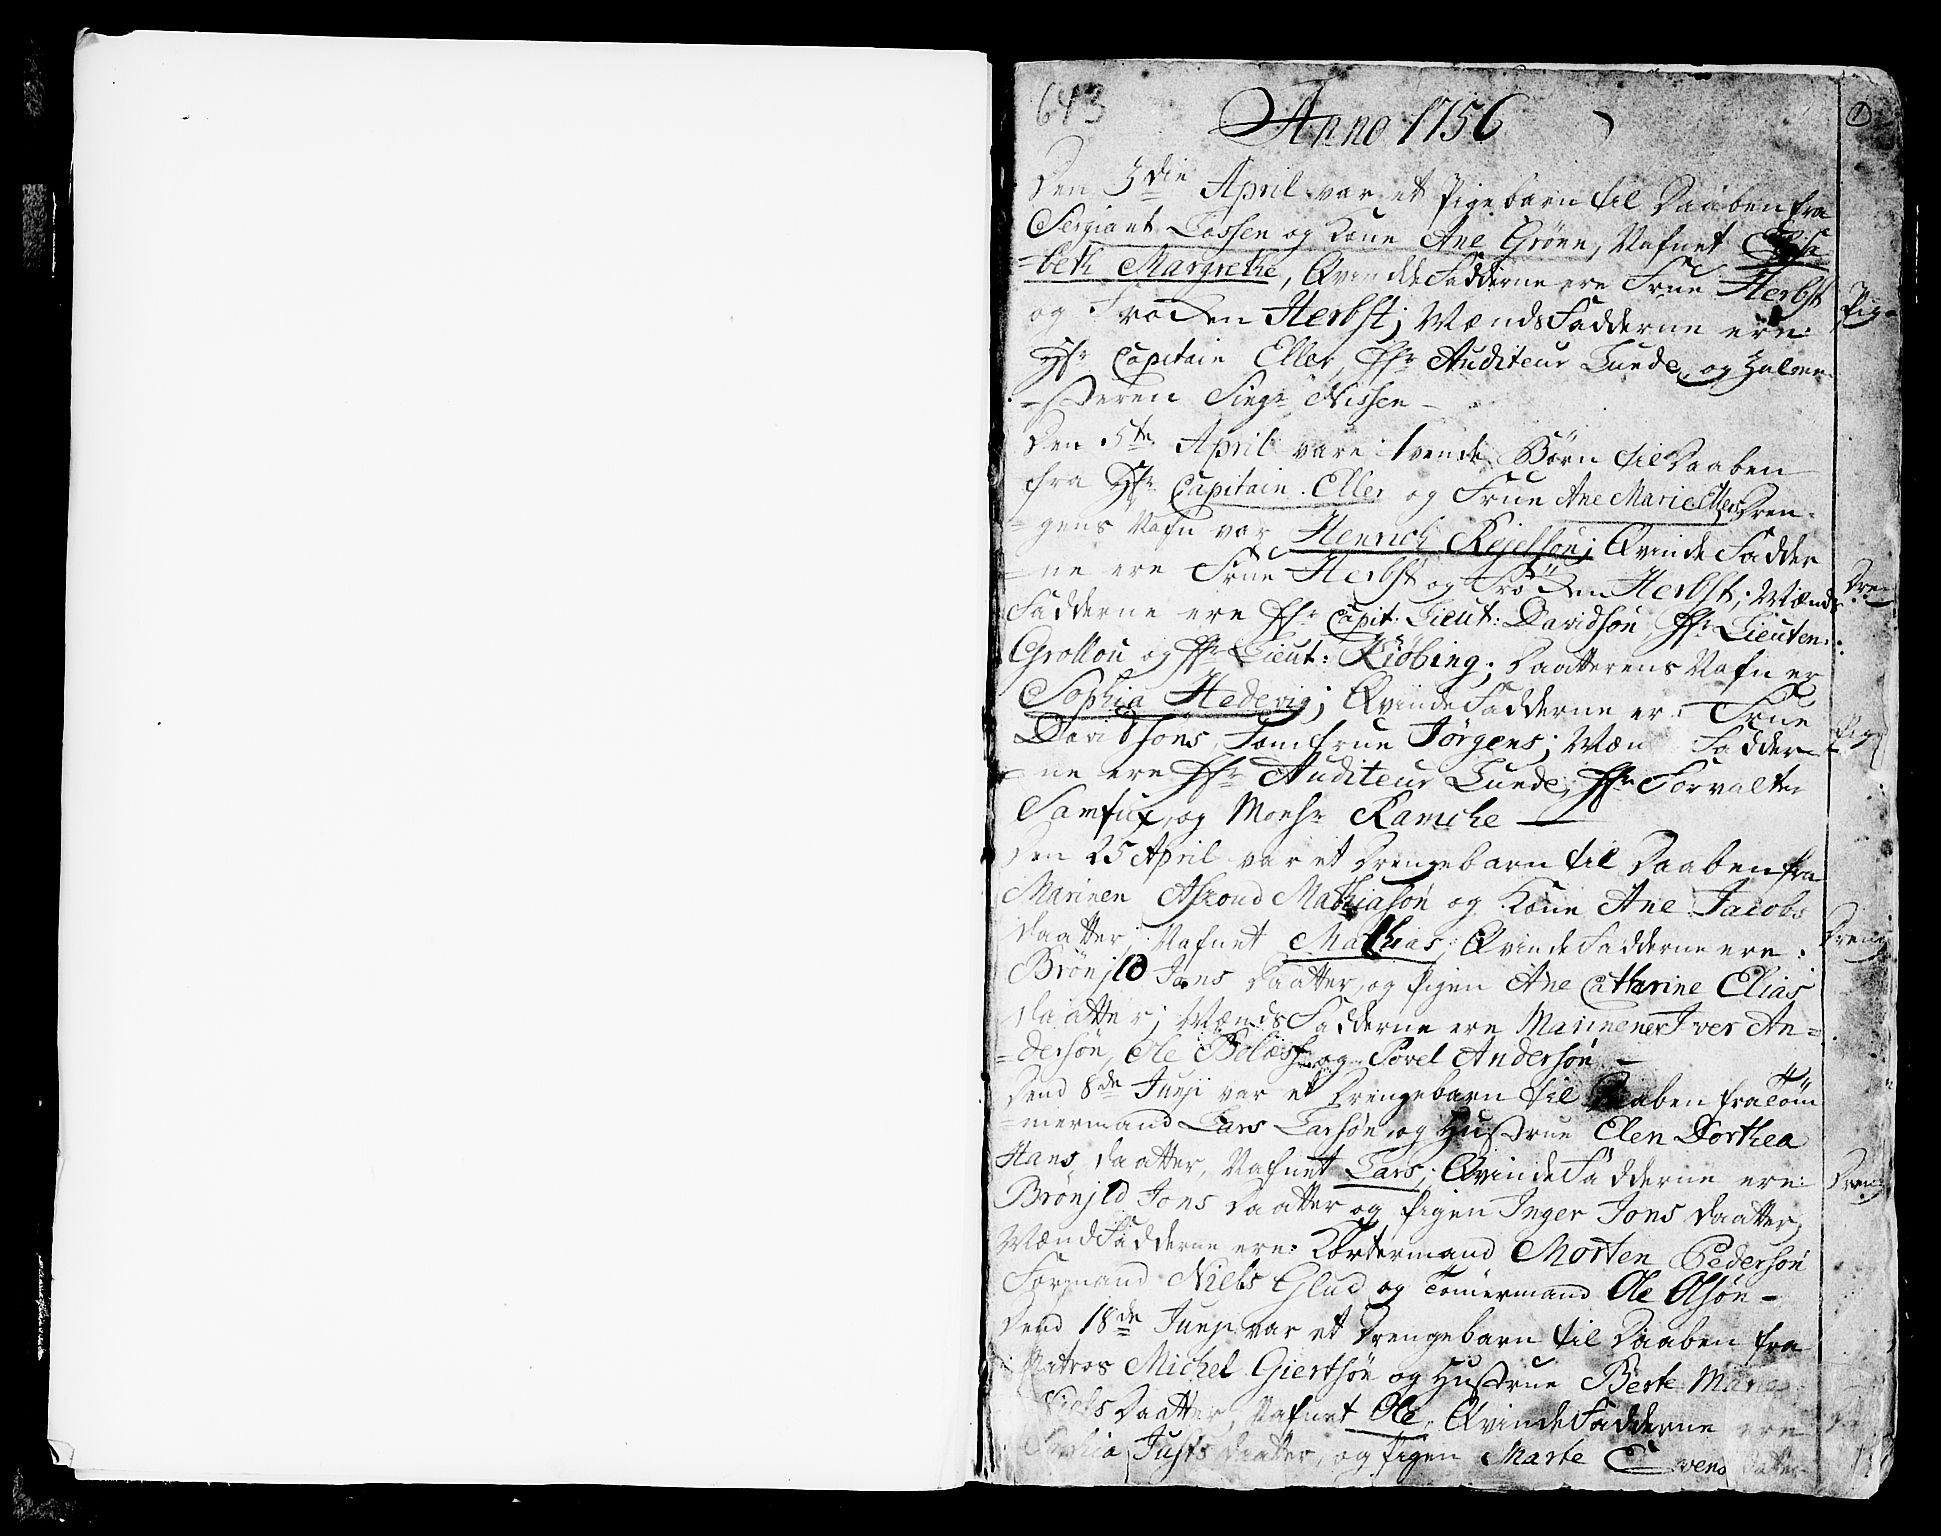 643
Anno 1756
1
Den 3die April var et Pigebarn til Daaben fra
Sergiant Lossen og Kone Ane Grönn, Nafnet Elisa
=beth Margrethe, QvindeFadderne ere Frue Herbst
Pige
og Frøcken Herbst; MændsFadderne ere:
Hr Capitain Eller, Hr Auditeur Lunde, og
Siegr Nissen
Den 5te April vare tvende Börn til Daaben
fra Hr Capitain Eller og Frue Ane Marie Ellers Dren-
=gens Nafn var Henrich Rejelsön; QvindeFadder
=ne ere Frue Herbst og Fröcken Herbst; Mænds
Dreng
Fadderne ere Hr Capit. Lieut: Davidsön, Hr Lieuten:
Grollou og Hr Lieut: Kiöbing; Daatterens Nafn er
Sophia Hedevig; QvindeFadderne er: Frue
Pige
Davidsöns, Jomfrue Jörgens; Mænds Fadder
=ne ere Hr Auditeur Lunde, Hr Forvalter
Samfux, og Monsr Ramche
Den 25 April var et Drengebarn til Daaben fra
Marinen Asioud Mathiasön og Kone Ane Jacobs
Daatter; Nafnet Mathias; QvindeFadderne ere:
Dreng
Brönjld Jons Daatter, og Pigen Ane Catharine Elias
Daatter; MændsFadderne ere Marinener Iver An=
=dersön, Ole og Povel Andersön
Dend 8de Junji var et Drengebarn til Daaben fra Töm
=mermand Lars Larsön, og Hustrue Elen Dorthea
Hans Daatter, Nafnet Lars; QvindeFadderne ere:
Dreng
Brönjld Jons Daatter og Pigen Inger Jons Daatter;
MændFadderne ere: Kortermand Morten Pedersön
Formand Niels Glud og Tömermand Ole Olsön
Dend 18de Junji var et Drengebarn til Daaben fra
Matros Michel Giertsön og Hustrue Berte Maria
Niels Daatter, Nafnet Ole, QvindeFadderne ere
Sophia Justs Daatter, og Pigen Marte Evens Datter